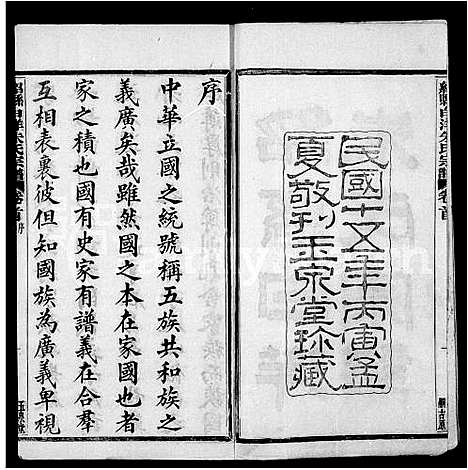 民國十五年丙寅孟
夏敬刊玉泉堂珍藏
序
中華立國之統號稱五族共和族之
義廣矣哉雖然國之本在家國也者
家之積也國有史家有譜義在合羣
互相表裏彼但知國族為廣義卑視
朱氏宗譜
卷首